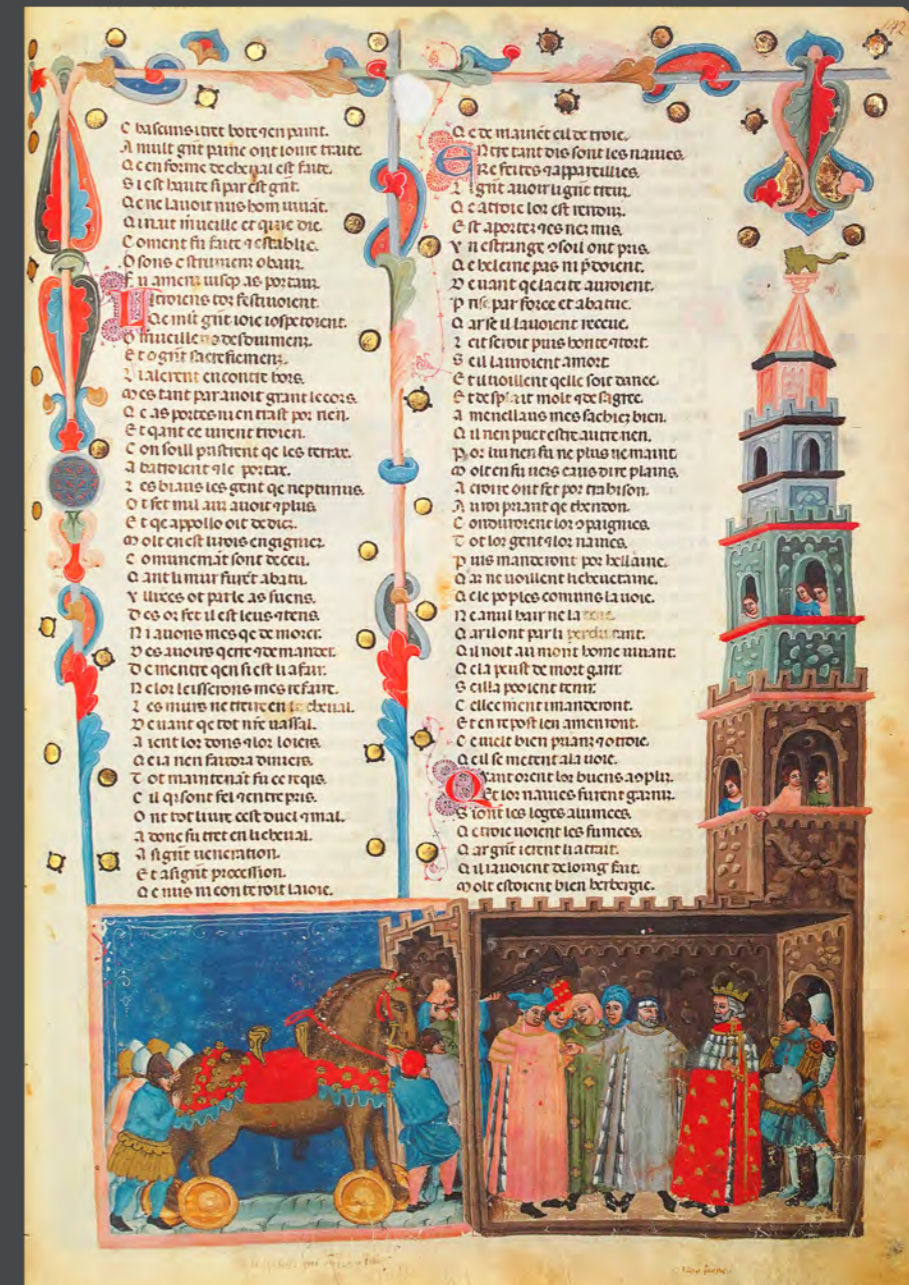 142
C hascuns itret bote ⁊ en paint.
A mult grāt paine ont ioure traite
Q e en forme de cheual est faite.
S i est haute si par est grāt.
Q e ne lauoit nus hom uiuāt.
Q uaut m̄ueille et qui e die.
C oment fu faite ⁊ establie.
O sons estrumenz
E n amenz iusqp as portaus.
L i troiens cor festiuoient.
Q e mlt grāt ioie
O m̄ueille
E t o grāt sacrefiemenz.
L i alerent encontre hors.
M es tant par auoit grant le cors.
Q e as portes ni en trast por rien.
E t qant ce uirent troien.
C on soill pristrent qe les terrax.
A batroient ⁊ le portax.
L es biaus les gent qe neptunus.
O t set mil anz auoit ⁊ plus.
E t qe appollo ot dedicz.
M olt en est engignicz.
C omunemāt sont deceu.
Q ant li mur furēt abatu.
V lixces ot parle as suens.
D es or fet il est leus ⁊ tens.
N i auons mes qe de morer.
D es auoirs qerre ⁊ demander.
D ementre qen si est li afair.
N e lor leisserons mes refaire.
L es murs ne tirer en le cheual.
D euant qe tot nr̄e uassal.
A ient lor dons ⁊ lor loiers.
Q e ia nen faudra deniers.
T ot maintenāt fu ce reqis.
C il qi sont fel ⁊ entrepris.
O nt tot liure cest duel ⁊ mal.
A donc fu tret en li cheual.
A si grāt ueneration.
E t a si grāt procession.
Q e nus ni conteroit la uoie.
Q e de maniēt cil de troie.
E Ntre tant dis sont les naiues.
R e feites ⁊ appareillies.
L i grāt auoir li grāt tresor.
Q e a troie lor est rendoiz.
E st aportez ⁊ es nez mis.
V n estrange 9soil ont pris.
Q e heleine pas ni p̄doient.
D euant qe la cite auroient.
P rise par force et abatue.
Q ar se il lauoient receue.
L cit seroit puis honte ⁊ tort.
S e il lauroient a mort.
E t il uoillent qelle soit danee.
E t desplait molt ⁊ desagree.
A menellaus mes sachiez bien.
Q il nen puet estre autre rien.
P or lui nen fu ne plus ne maint
M olt en fu
A troie ont fet por traihison.
A uroi priant qe
C onduiroient lor 9paignies.
T ot lor gent ⁊ lor naiues.
P uis manderont por hellaine.
Q ar ne uoillent
Q e le poples comuns la uoie.
N e a nul
Q ar il ont par li perdu tant.
Q il noit au mont home uiuant.
Q e la peust de mort garir.
S e il la pooient tenir.
C elleement imanderont.
E t en repost len amenront.
C e uielt bien prianz ⁊ otroie.
Q e il se metent a la uoie.
Q Vant orent lor buens a9plir.
E t lor naiues furent garnir.
S i ont les loges alumees.
Q e troie uoient les fumees.
Q ar grāt ierent li atrait.
Q il i auoient de loing fait.
M olt estoient bien herbergie.